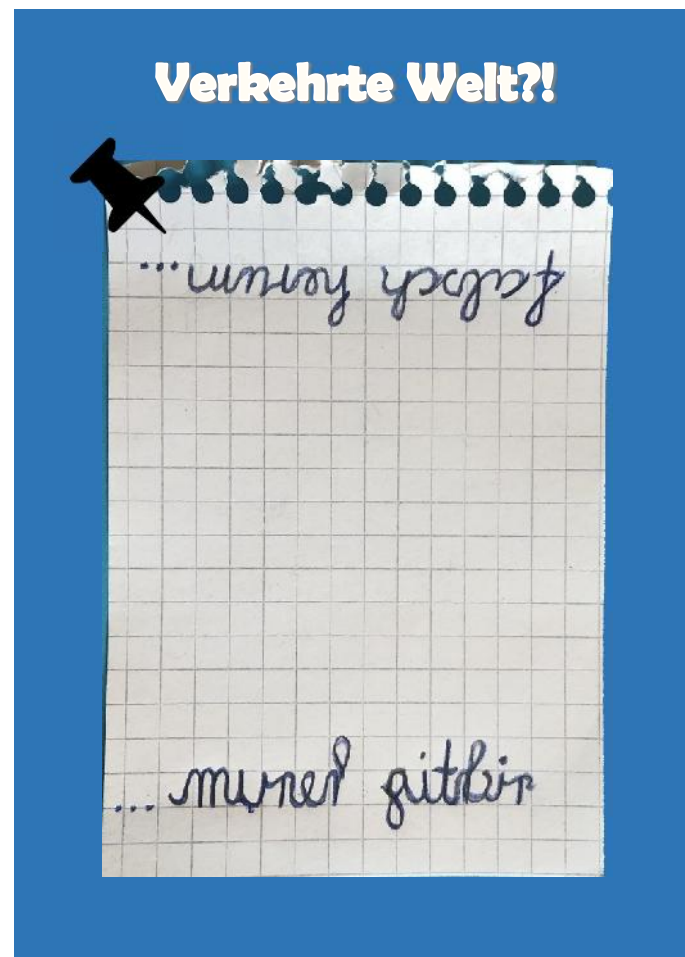 Verkehrte Welt?!
falsch herum...
richtig herum...